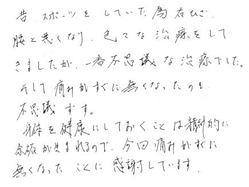 昔スポーツをしていた為右ひざ、
腰と悪くなり、色々な治療をして
きましたが、一番不思議な治療でした。
そして痛みがすぐに無くなったのも
不思議です。
身体を健康にしておくことは精神的に
余裕が生まれるので、今回痛みがすぐに
無くなったことに感謝しています。